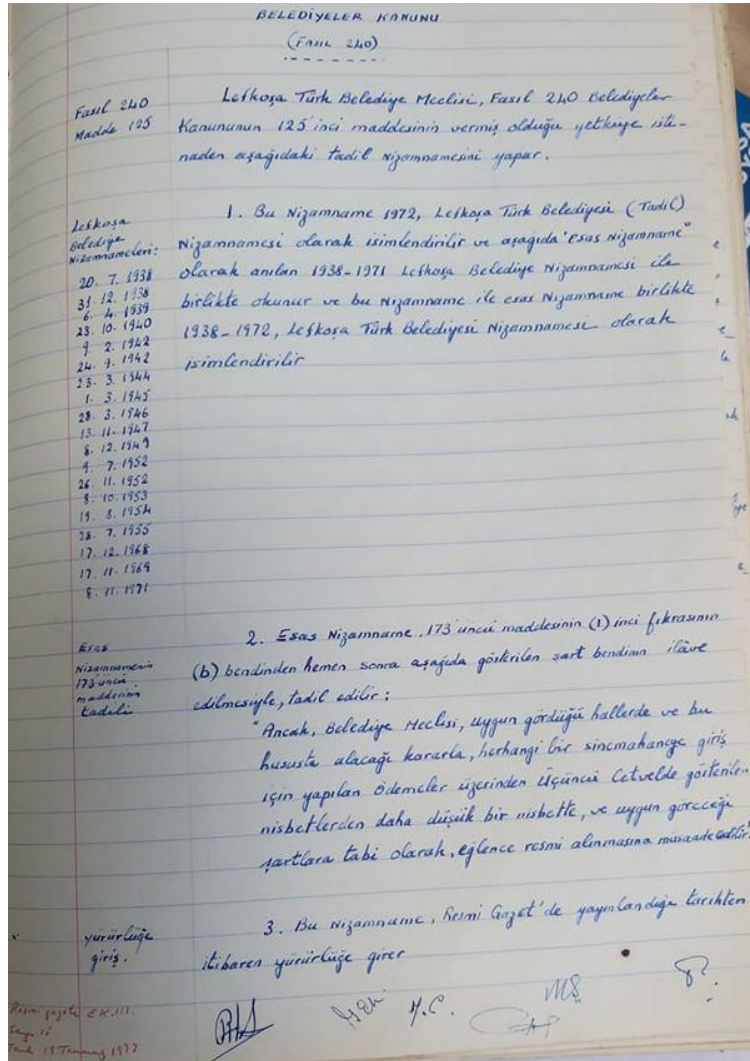 BELEDİYELER KANUNU
(FASIL 240)
Fasıl 240
Madde 125
Lefkoşa Türk Belediye Meclisi, Fasıl 240 Belediyeler
Kanununun 125'inci maddesinin vermiş olduğu yetkiye isti-
naden aşağıdaki tadil Nizamnamesini yapar.
Lefkoşa
Belediye
Nizamnameleri:
20. 7. 1938
31. 12. 1938
6. 4. 1939
23. 10. 1940
9. 2. 1942
24. 9. 1942
23. 3. 1944
1. 3. 1945
28. 3. 1946
13. 11. 1947
8. 12. 1949
9. 7. 1952
26. 11. 1952
8. 10. 1953
19. 8. 1954
28. 7. 1955
17. 12. 1968
17. 11. 1969
8. 11. 1971
1. Bu Nizamname 1972, Lefkoşa Türk Belediyesi (Tadil)
Nizamnamesi olarak isimlendirilir ve aşağıda "Esas Nizamname"
olarak anılan 1938-1971 Lefkoşa Belediye Nizamnamesi ile
birlikte okunur ve bu Nizamname ile esas Nizamname birlikte
1938-1972, Lefkoşa Türk Belediyesi Nizamnamesi olarak
isimlendirilir
Esas
Nizamnamenin
173'üncü
maddesinin
tadili
2. Esas Nizamname, 173'üncü maddesinin (1) inci fıkrasının
(b) bendinden hemen sonra aşağıda gösterilen şart bendinin ilâve
edilmesiyle, tadil edilir:
"Ancak, Belediye Meclisi, uygun gördüğü hallerde ve bu
hususta alacağı kararla, herhangi bir sinemahaneye giriş
için yapılan ödemeler üzerinden Üçüncü Cetvelde gösterilen
nisbetlerden daha düşük bir nisbette, ve uygun göreceği
şartlara tabi olarak, eğlence resmi alınmasına müsaade edilir."
yürürlüğe
giriş.
3. Bu Nizamname, Resmi Gazet'de yayınlandığı tarihten
itibaren yürürlüğe girer
Resmi gazete EK.III.
Sayı
Tarih 19 Temmuz 1972